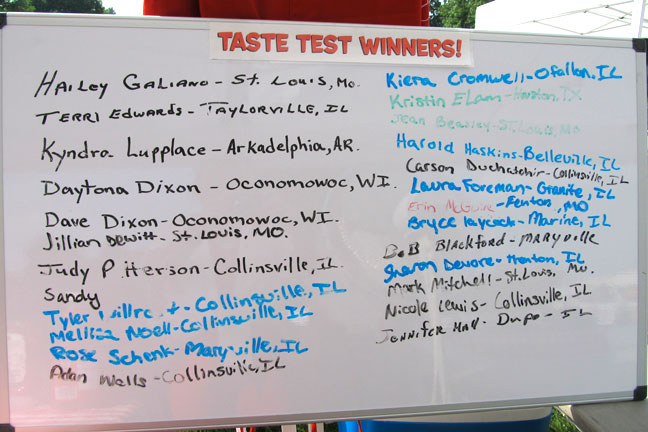 TASTE TEST WINNERS!
HAILEY GALIANO - ST. LOUIS, MO.
TERRI EDWARDS - TAYLORVILLE, IL
Kyndra Lupplace - Arkadelphia, AR.
Daytona Dixon - Oconomowoc, WI.
Dave Dixon - Oconomowoc, WI.
Jillian Dewitt - St. Louis, MO.
Judy - Collinsville, IL.
Sandy
Tyler - Collinsville, IL
Melissa Noell - Collinsville, IL
Rose Schenk - Maryville, IL
Adan Wells - Collinsville, IL
Kiera Cromwell - Ofallon, IL
Kristin Elam - Houston, TX
Jean Beasley - St. Louis, MO
Harold Haskins - Belleville, IL
Carson - Collinsville, IL
Laura Foreman - Granite, IL
Erin McGuire - Fenton, MO
Bryce - Marine, IL
BOB BLACKFORD - MARYVILLE
Sharon Devore - Trenton, IL
Mark Mitchell - St. Louis, Mo.
Nicole Lewis - Collinsville, IL
Jennifer Hall - Dupo - IL